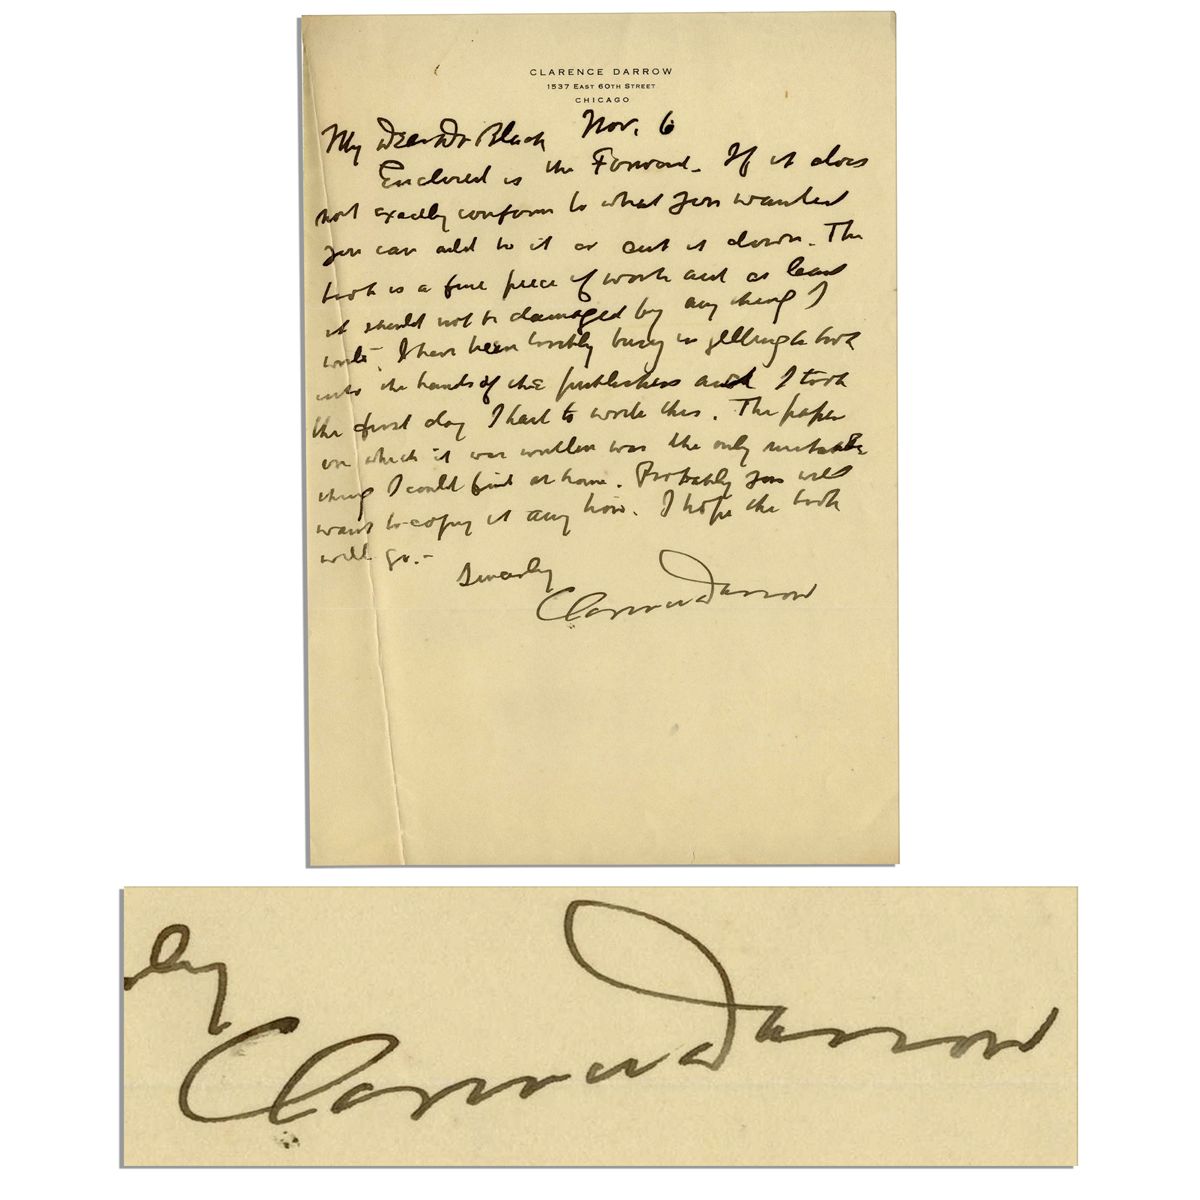 CLARENCE DARROW
1537 EAST 60TH STREET
CHICAGO
My Dear Mr Black Nov. 6
Enclosed is the Forword. If it does
not exactly conform to what you wanted
you can add to it or cut it down. The
book is a fine piece of work and at least
it should not be damaged by any thing I
write - I have been terribly busy in getting a book
into the hands of the publishers and I took
the first day I had to write this. The paper
on which it was written was the only suitable
thing I could find at home. Probably you will
want to copy it any how. I hope the book
will go. -
Sincerely
Clarence Darrow
ly
Clarence Darrow